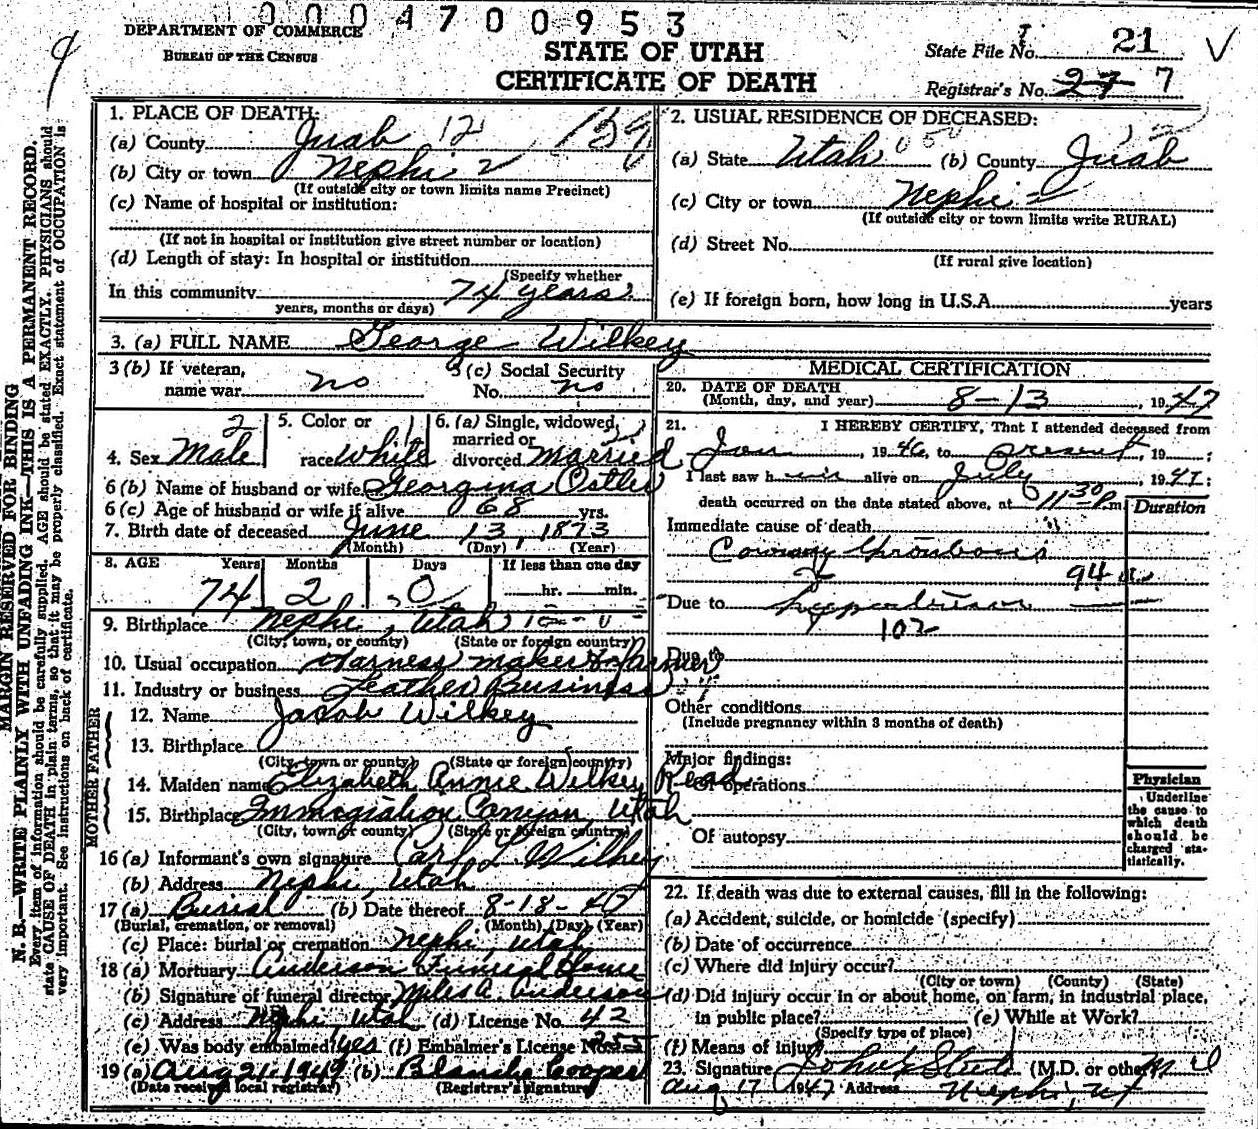 0 0 0 4 7 0 0 9 5 3
DEPARTMENT OF COMMERCE
BUREAU OF THE CENSUS
STATE OF UTAH
CERTIFICATE OF DEATH
State File No. 21
Registrar's No. 27 7
MARGIN RESERVED FOR BINDING
N. B.—WRITE PLAINLY WITH UNFADING INK—THIS IS A PERMANENT RECORD.
Every item of information should be carefully supplied. AGE should be stated EXACTLY. PHYSICIANS should
state CAUSE OF DEATH in plain terms, so that it may be properly classified. Exact statement of OCCUPATION is
very important. See instructions on back of certificate.
1. PLACE OF DEATH:
(a) County Juab 12
(b) City or town Nephi 2
(If outside city or town limits name Precinct)
(c) Name of hospital or institution:
(If not in hospital or institution give street number or location)
(d) Length of stay: In hospital or institution
(Specify whether
In this community 74 years
years, months or days)
2. USUAL RESIDENCE OF DECEASED:
(a) State Utah (b) County Juab
(c) City or town Nephi
(If outside city or town limits write RURAL)
(d) Street No.
(If rural give location)
(e) If foreign born, how long in U.S.A. years
3. (a) FULL NAME George Wilkey
3 (b) If veteran,
name war no
3 (c) Social Security
No. no
4. Sex Male 2
5. Color or
race White
6. (a) Single, widowed,
married or
divorced married
6 (b) Name of husband or wife Georgina Ostler
6 (c) Age of husband or wife if alive 68 yrs.
7. Birth date of deceased June 13, 1873
(Month) (Day) (Year)
8. AGE Years Months Days If less than one day
74 2 0 hr. min.
9. Birthplace Nephi, Utah
(City, town, or county) (State or foreign country)
10. Usual occupation Harness maker & farmer
11. Industry or business Leather Business
FATHER
12. Name Jacob Wilkey
13. Birthplace
(City, town or county) (State or foreign country)
MOTHER
14. Maiden name Elizabeth Annie Wilkey Read
15. Birthplace Immigration Canyon, Utah
(City, town or county) (State or foreign country)
16 (a) Informant's own signature Carl L. Wilkey
(b) Address Nephi, Utah
17 (a) Burial (b) Date thereof 8-18-47
(Burial, cremation, or removal) (Month) (Day) (Year)
(c) Place: burial or cremation Nephi, Utah
18 (a) Mortuary Anderson Funeral Home
(b) Signature of funeral director Miles A. Anderson
(c) Address Nephi Utah (d) License No. 42
(e) Was body embalmed? yes (f) Embalmer's License No. 255
19 (a) Aug 21, 1947 (b) Blanche Cooper
(Date received local registrar) (Registrar's signature)
MEDICAL CERTIFICATION
20. DATE OF DEATH
(Month, day, and year) 8-13, 1947
21. I HEREBY CERTIFY, That I attended deceased from
Jan, 1946, to present, 19 ;
I last saw him alive on July, 1947;
death occurred on the date stated above, at 11 30 P.m.
Duration
Immediate cause of death
Coronary Thrombosis
94 a
Due to hypertension
102
Due to
Other conditions
(Include pregnancy within 3 months of death)
Major findings:
Of operations
Of autopsy
Physician
Underline
the cause to
which death
should be
charged sta-
tistically.
22. If death was due to external causes, fill in the following:
(a) Accident, suicide, or homicide (specify)
(b) Date of occurrence
(c) Where did injury occur?
(City or town) (County) (State)
(d) Did injury occur in or about home, on farm, in industrial place,
in public place? (e) While at Work?
(Specify type of place)
(f) Means of injury
23. Signature (M.D. or other) M D
Aug 17 1947 Address Nephi, Ut